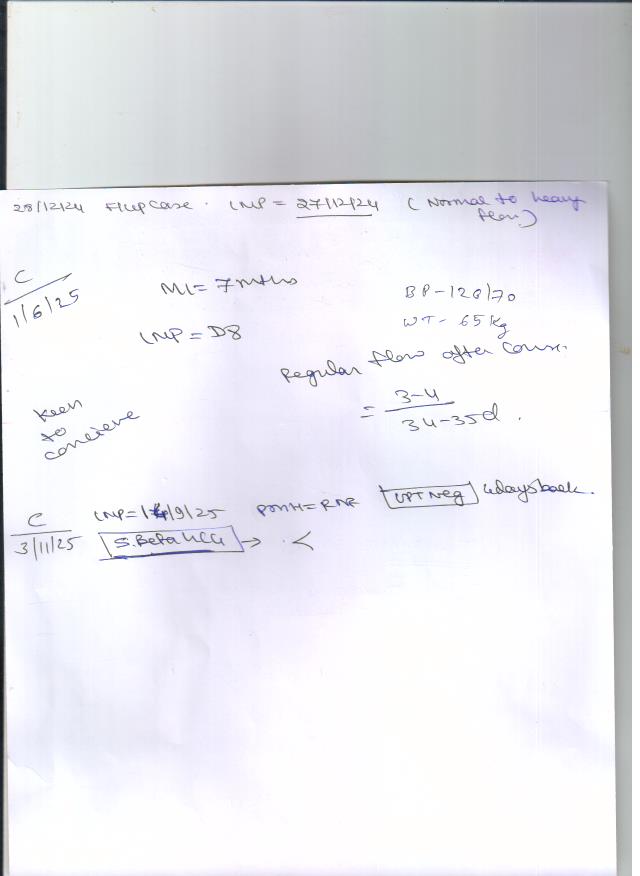 28/12/24 F/up Case. LMP = 27/12/24 (Normal to heavy
flow)
C
1/6/25
ML= 7mths
BP-128/70
WT- 65kg
LMP = D8
Regular flow after course.
= 3-4
34-35d.
Keen
to
concieve
C
3/11/25
LMP=14/9/25
UPT Neg 4daysback.
S.Beta HCG → . <